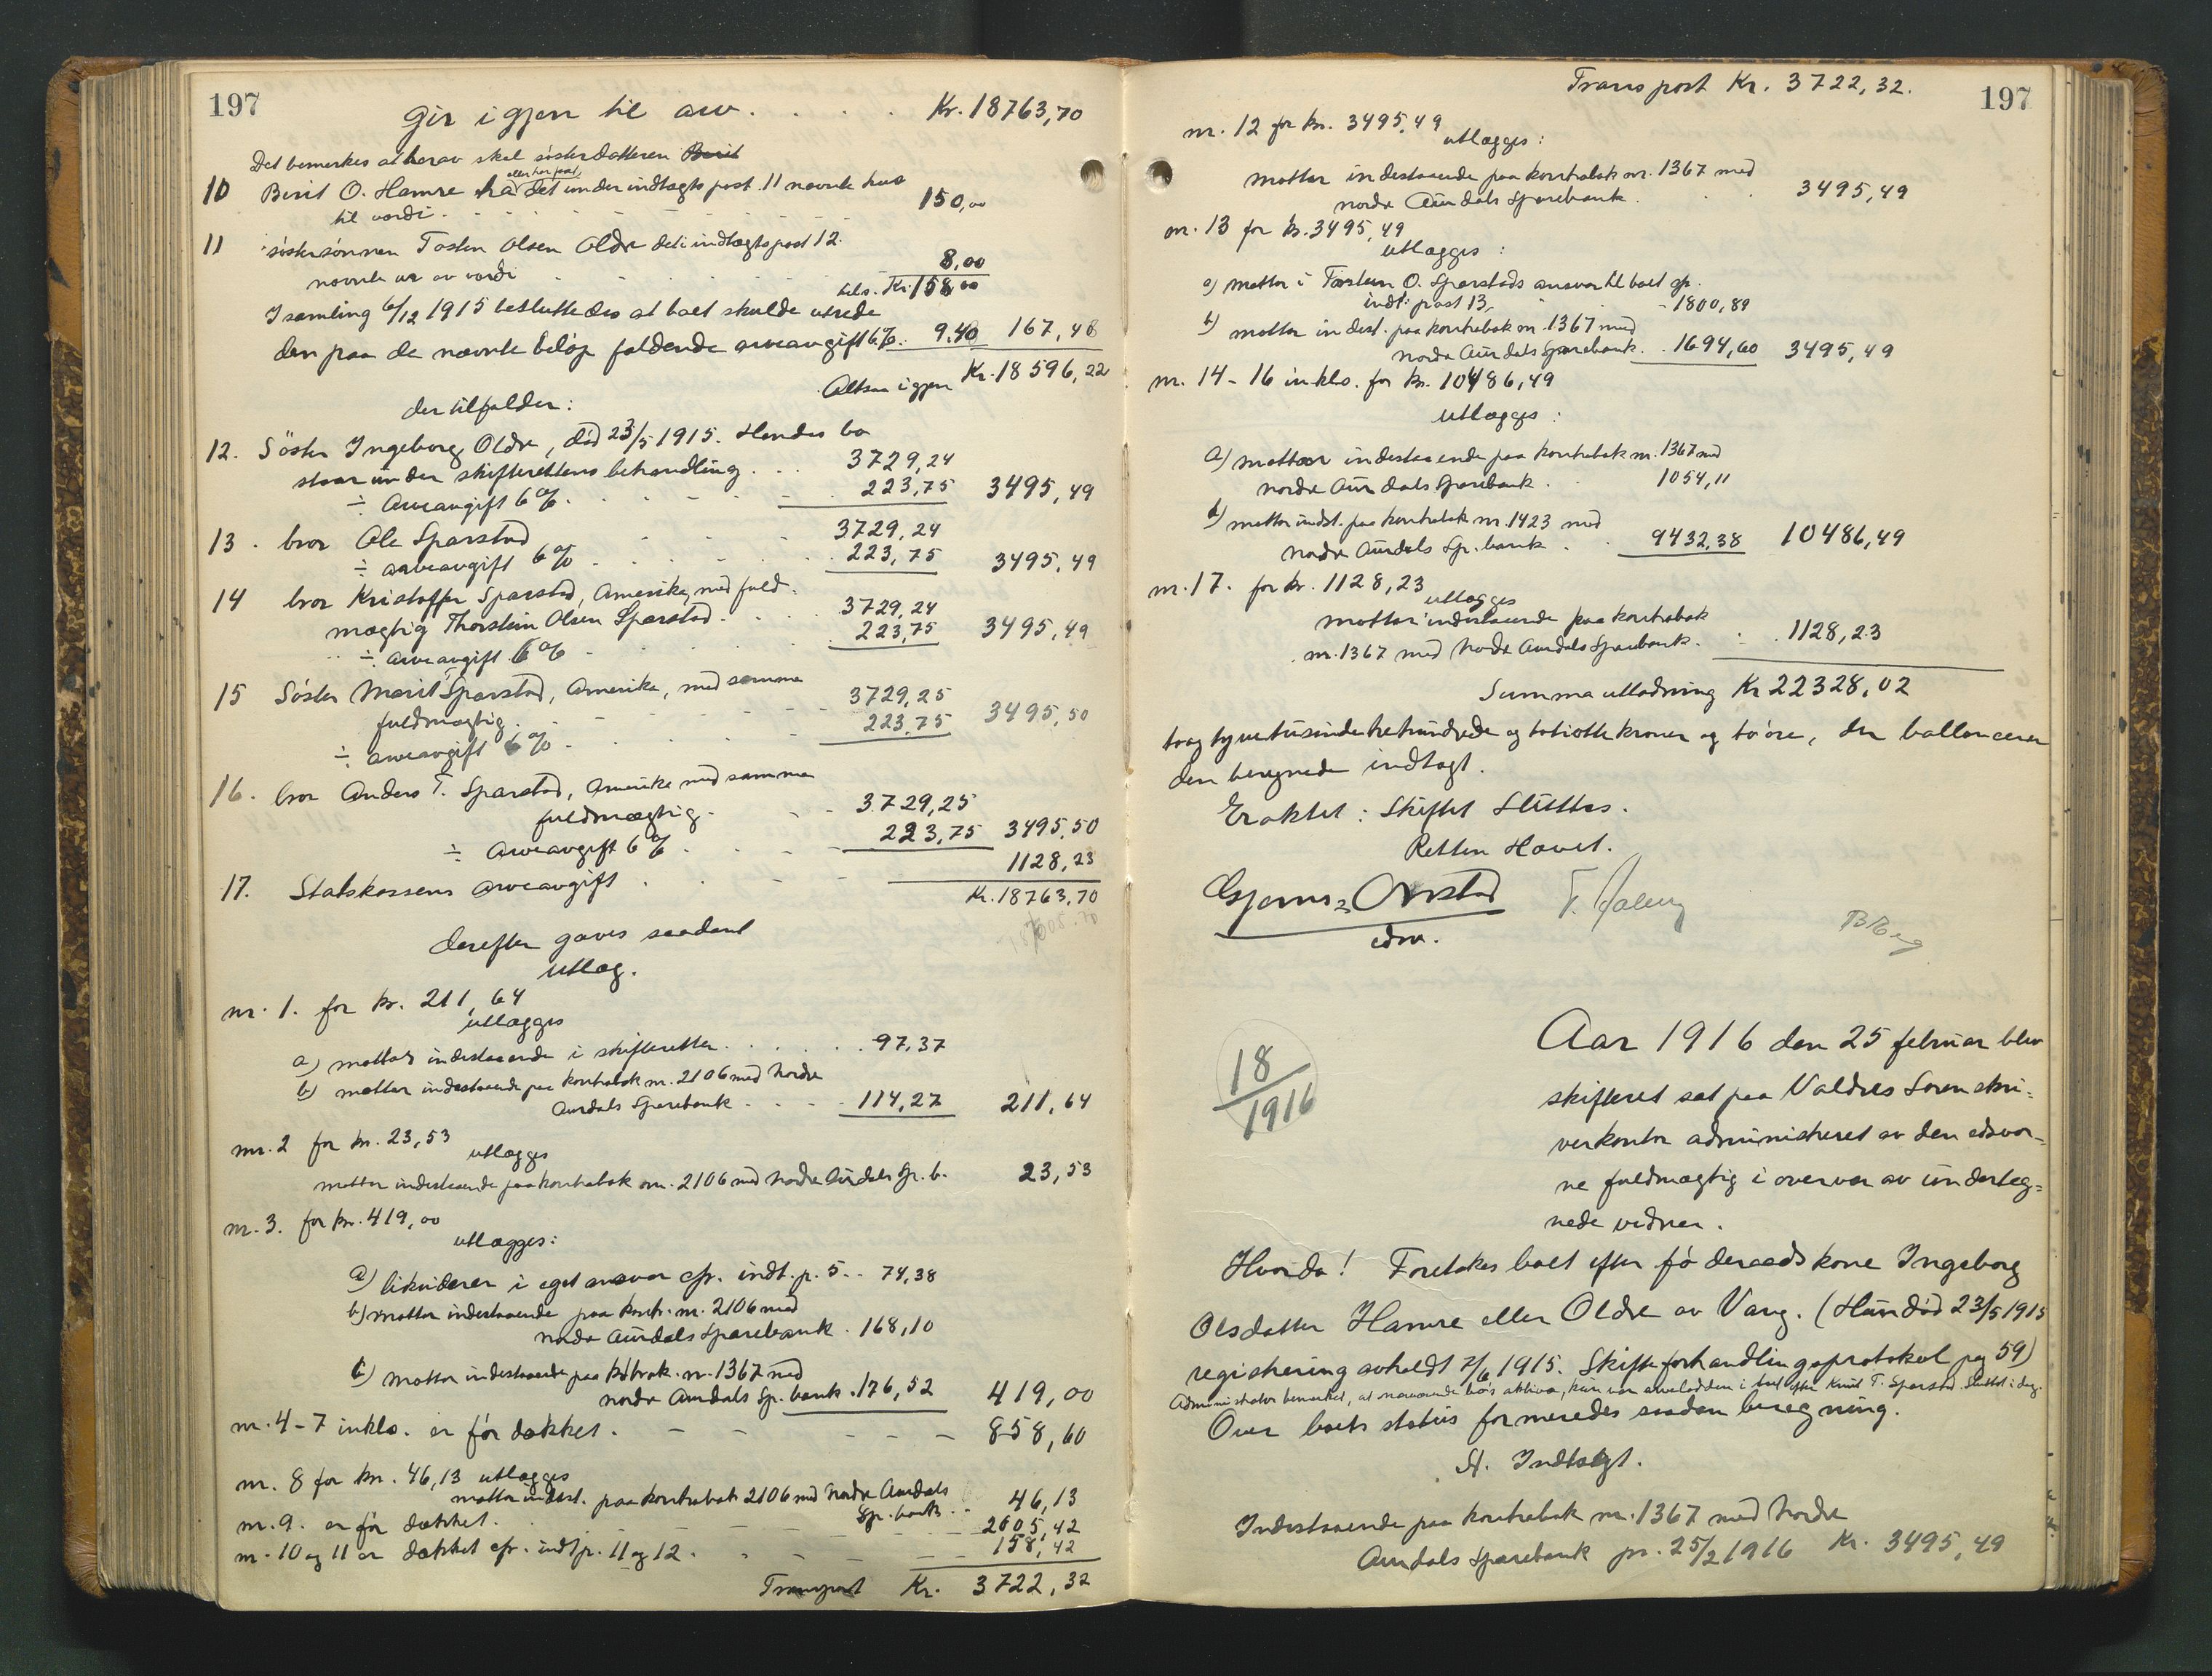 197
gir igjen til arv . . . . Kr. 18763,70
Det bemerkes at herav skal søsterdatteren Berit
eller har faat
10 Berit O. Hamre ha det under indtægts post 11 nævnte hus
til værdi . . . 150,00
11 søstersønnen Tosten Olsen Oldre det i indtægtspost 12.
nævnte ur av værdi 8,00
tils. Kr. 158,00
I samling 6/12 1915 besluttedes at boet skulde utrede
den paa de nævnte beløp faldende arveavgift 6%. 9,40 167,48
Altsaa igjen Kr. 18596,22
der tilfalder:
12. Søster Ingeborg Oldre, død 23/5 1915. Hendes bo
staar under skifterettens behandling . . . 3729,24
÷ Arveavgift 6% . 223,75 3495,49
13. bror Ole Sparstad 3729,24
÷ arveavgift 6% 223,75 3495,49
14 bror Kristoffer Sparstad, Amerika, med fuld-
mægtig Thorstein Olsen Sparstad . 3729,24
÷ arveavgift 6% 223,75 3495,49
15 Søster Marit Sparstad, Amerika, med samme
fuldmægtig . 3729,25
÷ arveavgift 6% . 223,75 3495,50
16. bror Anders T. Sparstad, Amerika med samme
fuldmægtig . 3729,25
÷ Arveavgift 6% . 223,75 3495,50
17. Statskassens arveavgift . 1128,23
Kr. 18763,70
derefter gaves saadant
utlæg.
nr. 1. for kr. 211,64
utlægges
a) mottar indestaaende i skifteretten . . . 97,37
b) mottar indestaaende paa kontrabok nr. 2106 med Nordre
Aurdals Sparebank . . . 114,27 211,64
nr. 2 for kr. 23,53
utlægges
mottar indestaaende paa kontrabok nr. 2106 med Nordre Aurdals Sp. b. 23,53
nr. 3. for kr. 419,00
utlægges:
a) likviderer i eget ansvar cfr. indt. p. 5 . . 74,38
b) mottar indestaaende paa kontr. nr. 2106 med
nordre Aurdals Sparebank . 168,10
c) mottar indestaaende paa ktrabok nr. 1367 med
nordre Aurdals Sp. bank . 176,52 419,00
nr. 4-7 inkls. er før dækket . 858,60
nr. 8 for kr. 46,13 utlægges
mottar indest. paa kontrabok 2106 med Nordre Aurdals
Sp. bank . . 46,13
nr. 9. er før dækket. 2605,42
nr. 10 og 11 er dækket cfr. indt p. 11 og 12 . 158,42
Transport Kr. 3722,32
Transport Kr. 3722,32.
197
nr. 12 for kr. 3495,49
utlægges:
mottar indestaaende paa kontrabok nr. 1367 med
nordre Aurdals Sparebank . 3495,49
nr. 13 for kr. 3495,49
utlægges:
a) mottar i Torstein O. Sparstads ansvar til boet cfr.
indt. post 13, 1800,89
b) mottar indest. paa kontrabok nr. 1367 med
nordre Aurdals Sparebank . 1694,60 3495,49
nr. 14-16 inkls. for kr. 10486,49
utlægges:
a) mottar indestaaende paa kontrabok nr. 1367 med
nordre Aurdals Sparebank . 1054,11
b) mottar indst. paa kontrabok nr. 1423 med
nordre Aurdals Sp. bank . 9432,38 10486,49
nr. 17. for kr. 1128,23
utlægges
mottar indestaaende paa kontrabok
nr. 1367 med Nordre Aurdals Sparebank . 1128,23
Summa utlodning Kr 22328,02
to og tyvetusindetrehundrede og totiotte kroner og to øre, der ballancerer
den beregnede indtægt.
Eraktet: Skiftet sluttes.
Retten Hævet.
edsv.
18/1916
Aar 1916 den 25 februar blev
skifteret sat paa Valdres Sorenskri-
verkontor administreret av den edsvor-
ne fuldmægtig i overvær av underteg-
nede vidner.
Hvorda! Foretokes boet efter føderaadskone Ingeborg
Olsdatter Hamre eller Oldre av Vang. (Hun død 23/5 1915
registrering avholdt 7/6 1915. Skifteforhandlingsprotokol pag 59)
Administrator bemerket, at nærværende bo's aktiva, kun var arvelodden i boet efter Knut T. Sparstad. Sluttet i dag.
Over boets status formeredes saadan beregning.
A. Indtægt.
Indestaaende paa kontrabok nr. 1367 med Nordre
Aurdals Sparebank pr. 25/2 1916 Kr. 3495,49